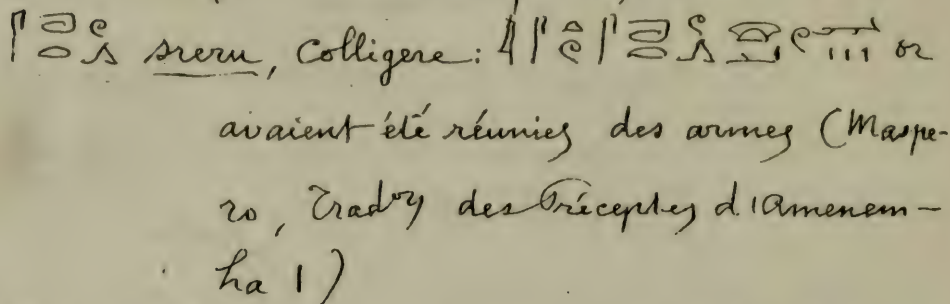 sreru, colligere: or
avaient été réunies des armes (Maspe-
ro, Tradon des Préceptes d'Amenem-
ha 1)